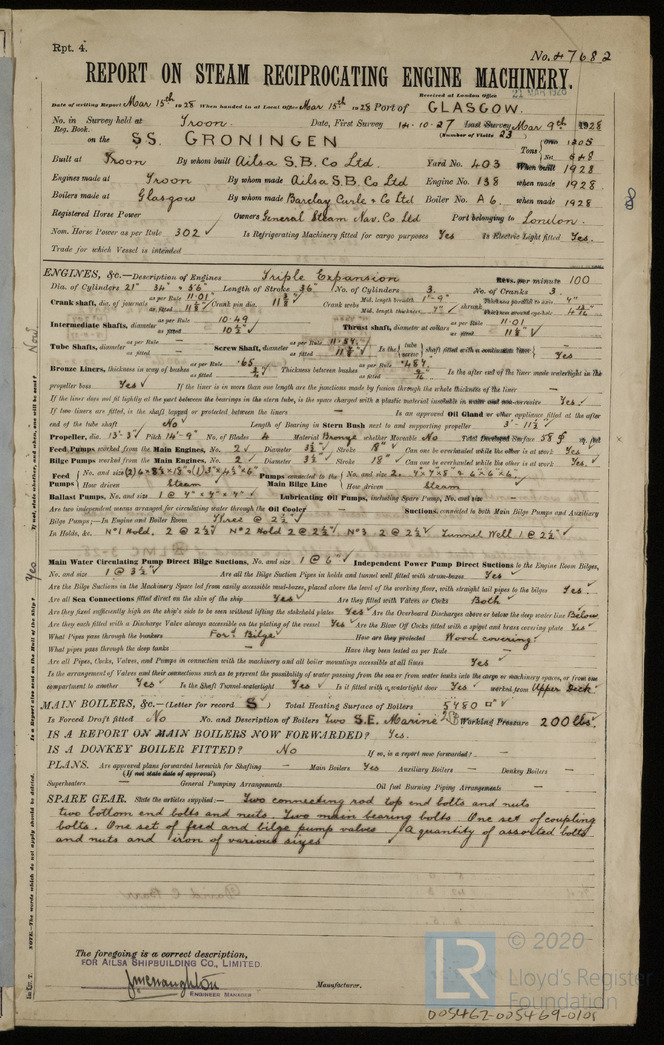 Rpt. 4.
No. 47682
REPORT ON STEAM RECIPROCATING ENGINE MACHINERY.
Received at London Office
Date of writing Report Mar 15th 1928 When handed in at Local Office Mar 15th 1928 Port of GLASGOW.
No. in Survey held at Troon. Date, First Survey 14-10-27 Last Survey Mar 9th 1928
Reg. Book. (Number of Visits 23)
on the SS. GRONINGEN Tons Gross 1205 Net 648
Built at Troon By whom built Ailsa S.B. Co Ltd. Yard No. 403 When built 1928
Engines made at Troon By whom made Ailsa S.B. Co Ltd Engine No. 138 when made 1928.
Boilers made at Glasgow By whom made Barclay Curle & Co Ltd Boiler No. A6. when made 1928
Registered Horse Power Owners General Steam Nav. Co Ltd Port belonging to London.
Nom. Horse Power as per Rule 302 Is Refrigerating Machinery fitted for cargo purposes Yes Is Electric Light fitted Yes.
Trade for which Vessel is intended
ENGINES, &c.—Description of Engines Triple Expansion Revs. per minute 100
Dia. of Cylinders 21" 34" & 56" Length of Stroke 36" No. of Cylinders 3. No. of Cranks 3.
Crank shaft, dia. of journals as per Rule 11.01 as fitted Crank pin dia. Crank webs Mid. length breadth 1'-9" Mid. length thickness 7" shrunk Thickness parallel to axis Thickness around eyehole
Intermediate Shafts, diameter as per Rule 10.49 as fitted 10½" Thrust shaft, diameter at collars as per Rule 11.01 as fitted
Tube Shafts, diameter as per Rule — as fitted — Screw Shaft, diameter as per Rule as fitted Is the tube screw shaft fitted with a continuous liner Yes
Bronze Liners, thickness in way of bushes as per Rule .65 as fitted Thickness between bushes as per Rule .487 as fitted Is the after end of the liner made watertight in the
propeller boss Yes If the liner is in more than one length are the junctions made by fusion through the whole thickness of the liner —
If the liner does not fit tightly at the part between the bearings in the stern tube, is the space charged with a plastic material insoluble in water and non-corrosive Yes
If two liners are fitted, is the shaft lapped or protected between the liners — Is an approved Oil Gland or other appliance fitted at the after
end of the tube shaft No Length of Bearing in Stern Bush next to and supporting propeller 3'-11½"
Propeller, dia. 13'-3" Pitch 14'-9" No. of Blades 4 Material Bronze whether Moveable No Total Developed Surface 58 sq. feet
Feed Pumps worked from the Main Engines, No. 2 Diameter 3½" Stroke 18" Can one be overhauled while the other is at work Yes.
Bilge Pumps worked from the Main Engines, No. 2 Diameter 3½" Stroke 18" Can one be overhauled while the other is at work Yes.
Feed Pumps No. and size How driven Steam Pumps connected to the Main Bilge Line No. and size How driven Steam
Ballast Pumps, No. and size 1 @ Lubricating Oil Pumps, including Spare Pump, No. and size —
Are two independent means arranged for circulating water through the Oil Cooler — Suctions, connected to both Main Bilge Pumps and Auxiliary
Bilge Pumps;—In Engine and Boiler Room Three @ 2½"
In Holds, &c. No 1 Hold, 2 @ 2½" No 2 Hold 2 @ 2½" No 3 2 @ 2½" Tunnel Well 1 @ 2½"
Main Water Circulating Pump Direct Bilge Suctions, No. and size 1 @ 6" Independent Power Pump Direct Suctions to the Engine Room Bilges,
No. and size 1 @ 3½" Are all the Bilge Suction Pipes in holds and tunnel well fitted with strum-boxes Yes
Are the Bilge Suctions in the Machinery Space led from easily accessible mud-boxes, placed above the level of the working floor, with straight tail pipes to the bilges Yes.
Are all Sea Connections fitted direct on the skin of the ship Yes Are they fitted with Valves or Cocks Both
Are they fixed sufficiently high on the ship's side to be seen without lifting the stokehold plates Yes Are the Overboard Discharges above or below the deep water line Below
Are they each fitted with a Discharge Valve always accessible on the plating of the vessel Yes Are the Blow Off Cocks fitted with a spigot and brass covering plate Yes
What Pipes pass through the bunkers For'd Bilge How are they protected Wood covering.
What pipes pass through the deep tanks — Have they been tested as per Rule —
Are all Pipes, Cocks, Valves, and Pumps in connection with the machinery and all boiler mountings accessible at all times Yes
Is the arrangement of Valves and their connections such as to prevent the possibility of water passing from the sea or from water tanks into the cargo or machinery spaces, or from one
compartment to another Yes Is the Shaft Tunnel watertight Yes Is it fitted with a watertight door Yes worked from Upper Deck
MAIN BOILERS, &c.—(Letter for record S) Total Heating Surface of Boilers 5480 □"
Is Forced Draft fitted No No. and Description of Boilers Two S.E. Marine Working Pressure 200 lbs.
IS A REPORT ON MAIN BOILERS NOW FORWARDED? Yes.
IS A DONKEY BOILER FITTED? No If so, is a report now forwarded? —
PLANS. Are approved plans forwarded herewith for Shafting — Main Boilers Yes Auxiliary Boilers — Donkey Boilers —
(If not state date of approval)
Superheaters — General Pumping Arrangements Oil fuel Burning Piping Arrangements —
SPARE GEAR. State the articles supplied:— Two connecting rod top end bolts and nuts
two bottom end bolts and nuts. Two main bearing bolts. One set of coupling
bolts. One set of feed and bilge pump valves A quantity of assorted bolts
and nuts and iron of various sizes
The foregoing is a correct description,
FOR AILSA SHIPBUILDING CO., LIMITED.
J. McNaughton
ENGINEER MANAGER
Manufacturer.
LR
© 2020
Lloyd's Register
Foundation
005462-005469-0101